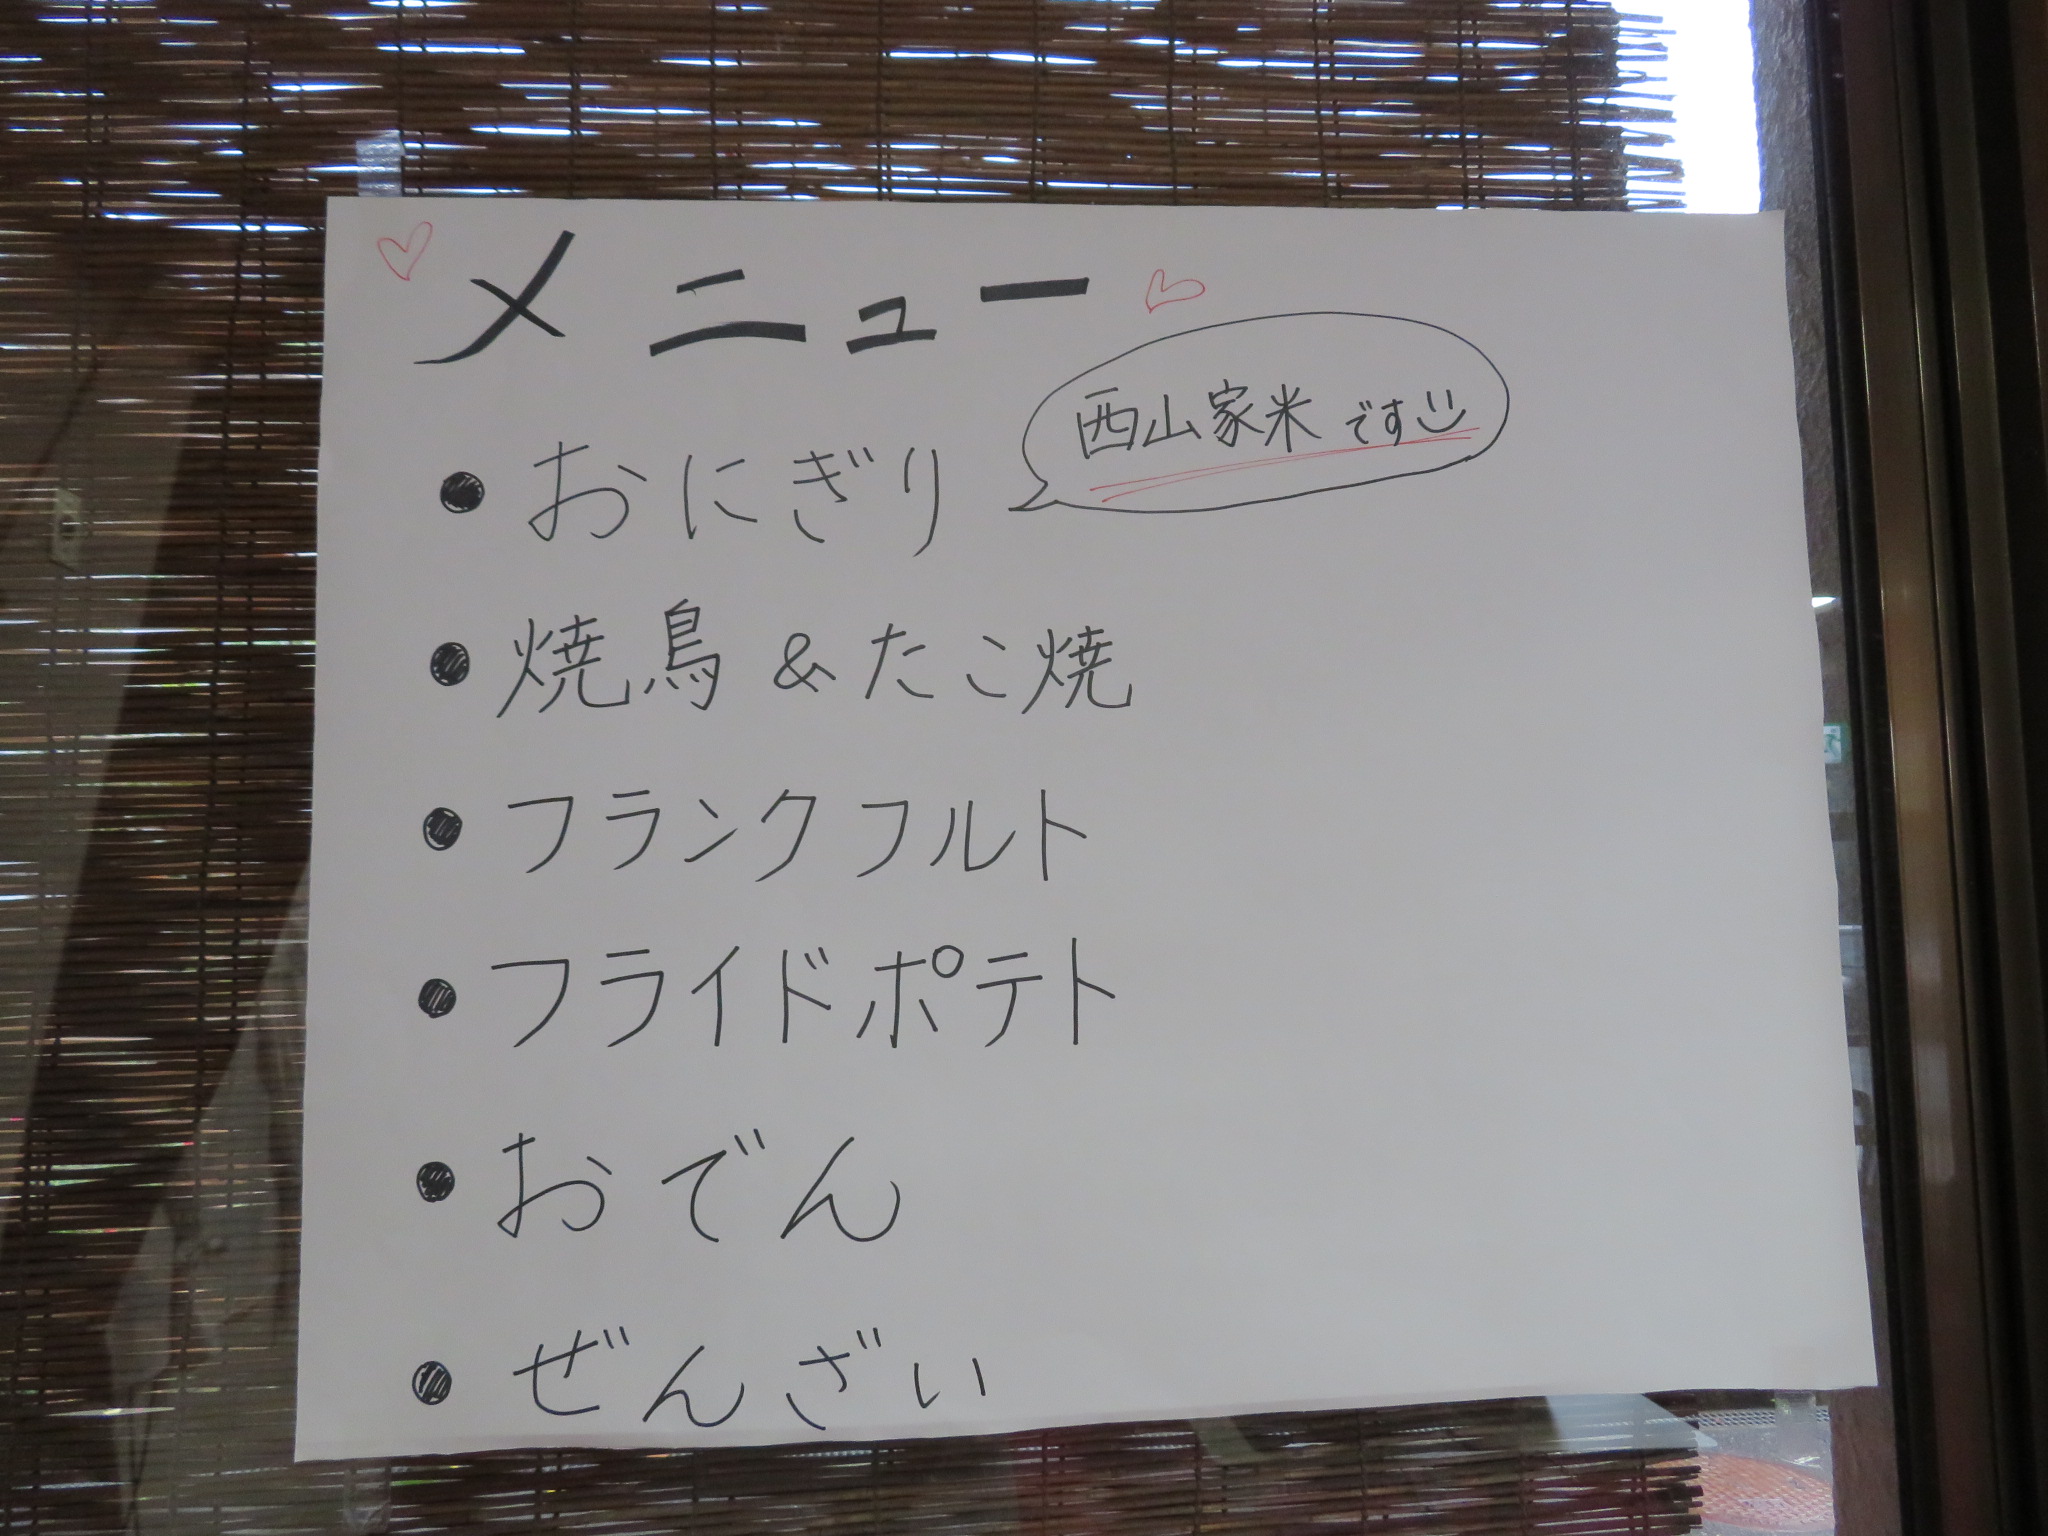 メニュー
西山家米です
● おにぎり
● 焼鳥 & たこ焼
● フランクフルト
● フライドポテト
● おでん
● ぜんざい